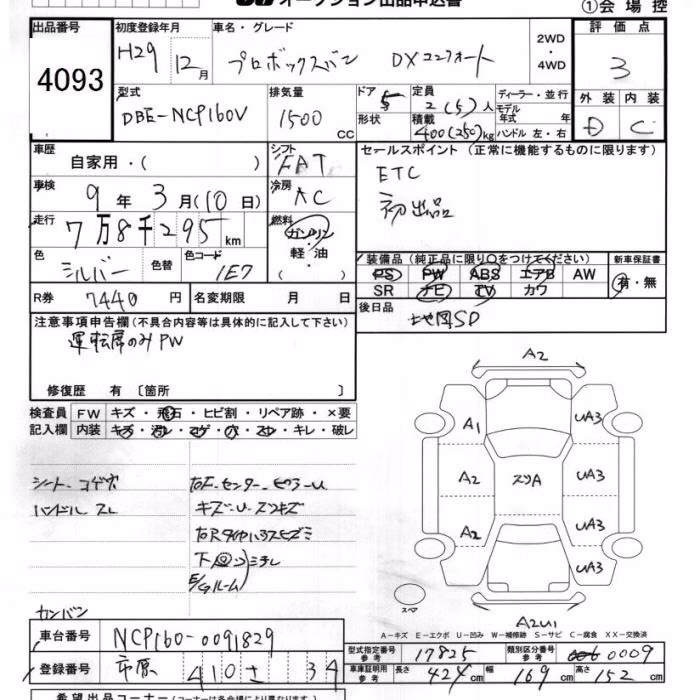 オークション出品申込書
①会場控
出品番号 4093
初度登録年月 H29 12月
車名・グレード プロボックスバン DXコンフォート
2WD・4WD
評価点 3
外装 D 内装 C
型式 DBE-NCP160V
排気量 1500 CC
ドア 5 形状
定員 2(5)人
積載 400(250)kg
ディーラー・並行
モデル年式 年
ハンドル 左・右
車歴 自家用・( )
シフト FAT
セールスポイント (正常に機能するものに限ります)
ETC
初出品
車検 9年 3月(10日)
冷房 AC
走行 7万8千295km
燃料 ガソリン・軽油・( )
色 シルバー 色替 色コード 1E7
装備品(純正品に限り○をつけてください) 新車保証書
PS PW ABS エアB AW
SR ナビ TV カワ
有・無
R券 7440円 名変期限 月 日
後日品 地図SD
注意事項申告欄(不具合内容等は具体的に記入して下さい)
運転席のみPW
修復歴 有 〔箇所 〕
検査員記入欄 FW キズ・飛石・ヒビ割・リペア跡・×要
内装 キズ・汚レ・コゲ・穴・スレ・キレ・破レ
シート コゲ穴
ハンドル スレ
キズ-U-スリキズ
E/Gルーム)
A2
A1 UA3
A2 スリA UA3
A2 UA3
UA3
スペア
A2U1
A-キズ E-エクボ U-凹み W-補修跡 S-サビ C-腐食 XX-交換済
カンバン
車台番号 NCP160-0091829
登録番号 市原 410 さ 34
型式指定番号 参考 17825 類別区分番号 参考 0009
車庫証明用 参考 長さ 424cm 幅 169cm 高さ 152cm
希望出品コーナー